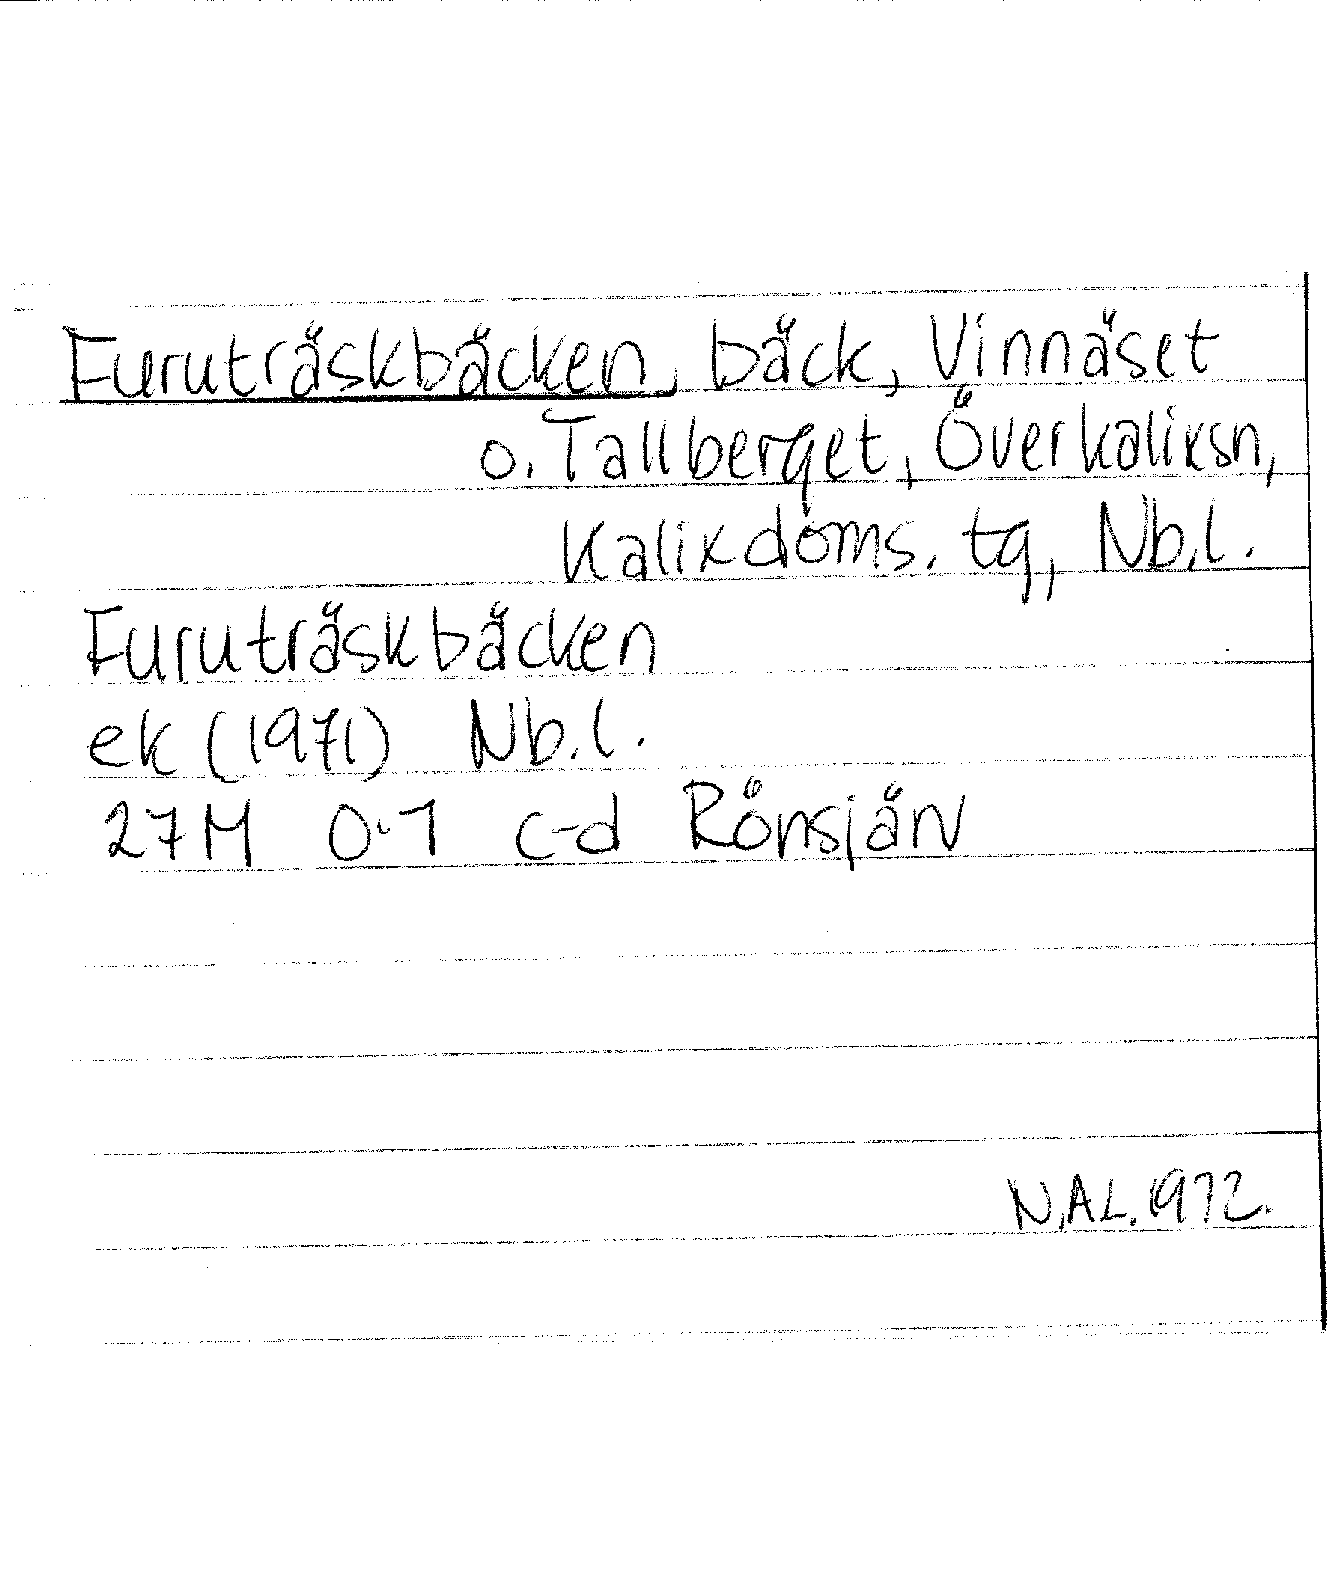 Furuträskbäcken, bäck, Vinnäset
o. Tallberget, Överkaliksn,
Kalixdoms. tg, Nb.l.
Furuträskbäcken
ek (1971) Nb.l.
27M 0-1 c-d Rönsjärv
N.A.L. 1972.